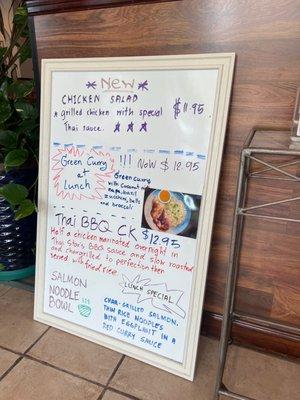 New
CHICKEN SALAD
grilled chicken with special $11.95
Thai sauce.
Green Curry
at
Lunch
!!! Now $12.95
Green curry
with coconut
bamboo, basil
zucchini, bells
and broccoli
THAI BBQ CK $12.95
Half a chicken marinated overnight in
Thai Star's BBQ sauce and slow roasted
and chargrilled to perfection then
served with fried rice
SALMON
NOODLE
BOWL
LUNCH SPECIAL
CHAR-GRILLED SALMON.
THIN RICE NOODLES
WITH EGGPLANT IN A
RED CURRY SAUCE